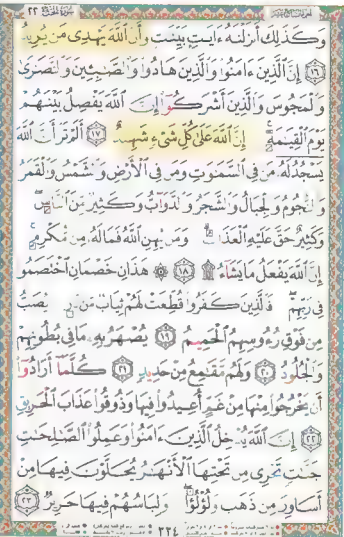 سورة الحج ٢٢
وَكَذَٰلِكَ أَنزَلْنَٰهُ ءَايَٰتٍۭ بَيِّنَٰتٍ وَأَنَّ ٱللَّهَ يَهْدِى مَن يُرِيدُ
١٦ إِنَّ ٱلَّذِينَ ءَامَنُوا۟ وَٱلَّذِينَ هَادُوا۟ وَٱلصَّٰبِـِٔينَ وَٱلنَّصَٰرَىٰ
وَٱلْمَجُوسَ وَٱلَّذِينَ أَشْرَكُوٓا۟ إِنَّ ٱللَّهَ يَفْصِلُ بَيْنَهُمْ
يَوْمَ ٱلْقِيَٰمَةِ إِنَّ ٱللَّهَ عَلَىٰ كُلِّ شَىْءٍ شَهِيدٌ ١٧ أَلَمْ تَرَ أَنَّ ٱللَّهَ
يَسْجُدُ لَهُۥ مَن فِى ٱلسَّمَٰوَٰتِ وَمَن فِى ٱلْأَرْضِ وَٱلشَّمْسُ وَٱلْقَمَرُ
وَٱلنُّجُومُ وَٱلْجِبَالُ وَٱلشَّجَرُ وَٱلدَّوَآبُّ وَكَثِيرٌ مِّنَ ٱلنَّاسِ
وَكَثِيرٌ حَقَّ عَلَيْهِ ٱلْعَذَابُ وَمَن يُهِنِ ٱللَّهُ فَمَا لَهُۥ مِن مُّكْرِمٍ
إِنَّ ٱللَّهَ يَفْعَلُ مَا يَشَآءُ ١٨ ۞ هَٰذَانِ خَصْمَانِ ٱخْتَصَمُوا۟
فِى رَبِّهِمْ فَٱلَّذِينَ كَفَرُوا۟ قُطِّعَتْ لَهُمْ ثِيَابٌ مِّن نَّارٍ يُصَبُّ
مِن فَوْقِ رُءُوسِهِمُ ٱلْحَمِيمُ ١٩ يُصْهَرُ بِهِۦ مَا فِى بُطُونِهِمْ
وَٱلْجُلُودُ ٢٠ وَلَهُم مَّقَٰمِعُ مِنْ حَدِيدٍ ٢١ كُلَّمَآ أَرَادُوٓا۟
أَن يَخْرُجُوا۟ مِنْهَا مِنْ غَمٍّ أُعِيدُوا۟ فِيهَا وَذُوقُوا۟ عَذَابَ ٱلْحَرِيقِ
٢٢ إِنَّ ٱللَّهَ يُدْخِلُ ٱلَّذِينَ ءَامَنُوا۟ وَعَمِلُوا۟ ٱلصَّٰلِحَٰتِ
جَنَّٰتٍ تَجْرِى مِن تَحْتِهَا ٱلْأَنْهَٰرُ يُحَلَّوْنَ فِيهَا مِنْ
أَسَاوِرَ مِن ذَهَبٍ وَلُؤْلُؤًا وَلِبَاسُهُمْ فِيهَا حَرِيرٌ ٢٣
٣٣٤